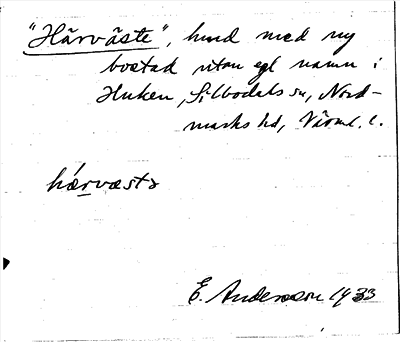 "Härväste", hund med ny
bostad utan egl namn i
Huken, Silbodals sn, Nord-
marks hd, Värml. l.
hærvæstə
E. Andersson 1933